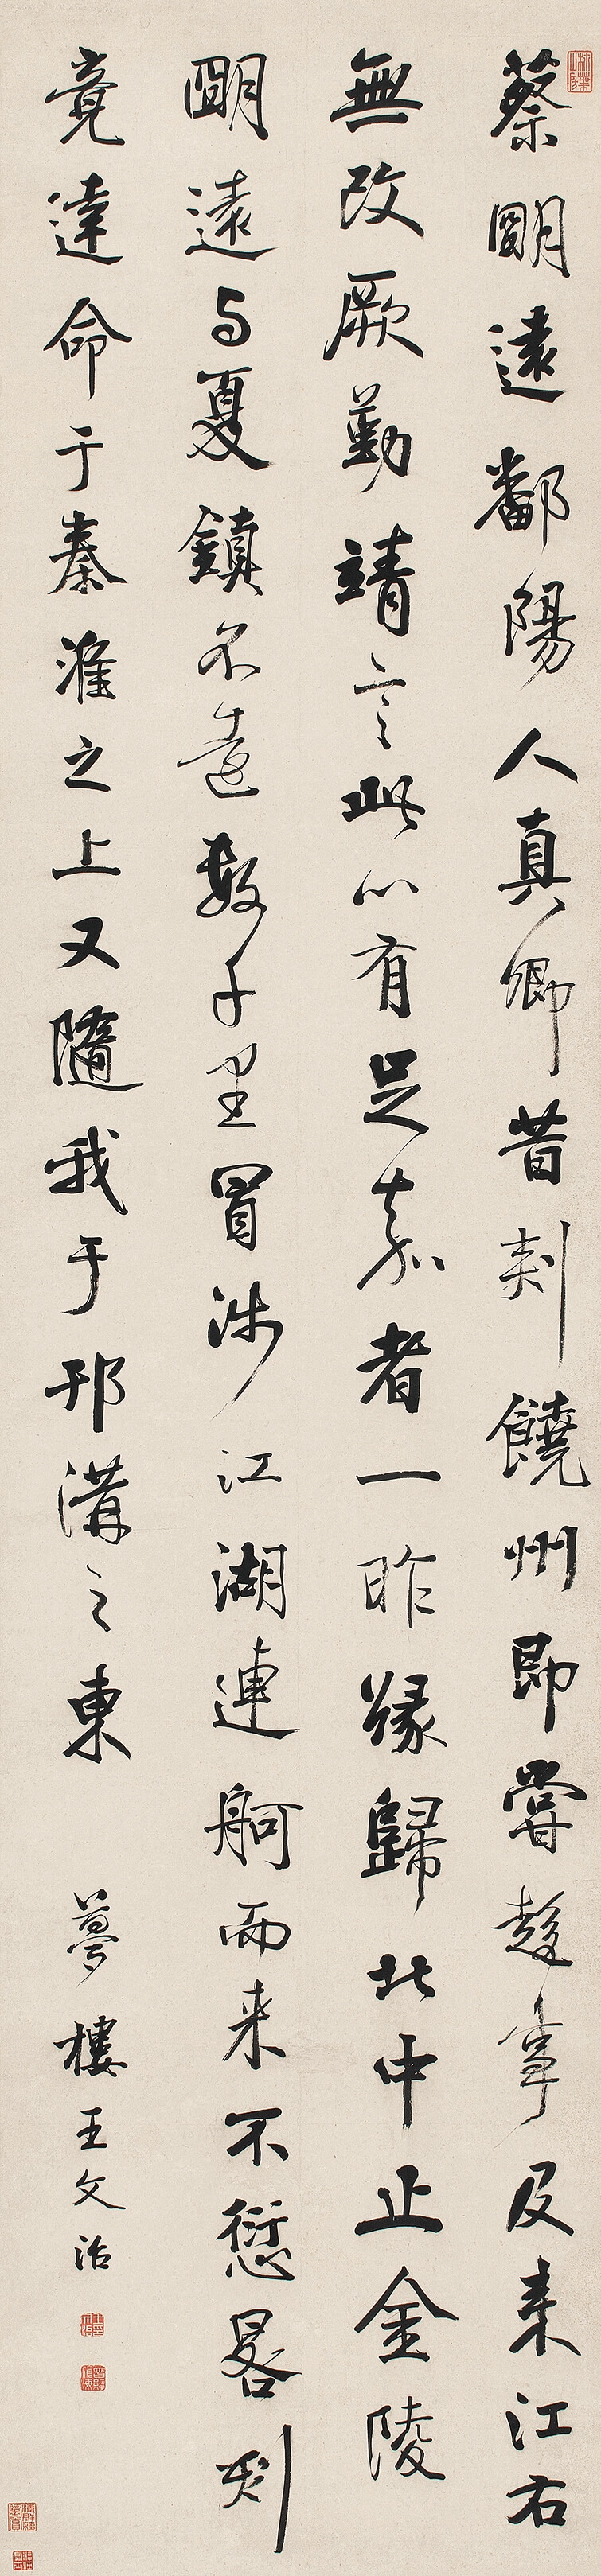 蔡朙遠鄱陽人真卿昔刺饒州即嘗趍事及来江右
無改厥勤靖言此心有足嘉者一昨緣歸北中止金陵
朙遠与夏鎮不遠數千里冒涉江湖連舸而来不愆晷刻
竟達命于秦淮之上又隨我于邗溝之東
夢樓王文治